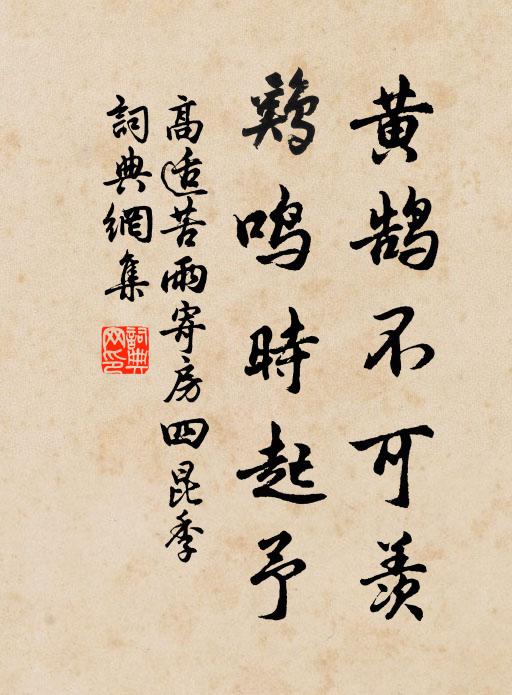 黄鹄不可羡
鷄鸣時起予
高适苦雨寄房四昆季
詞典網集
詞典网印